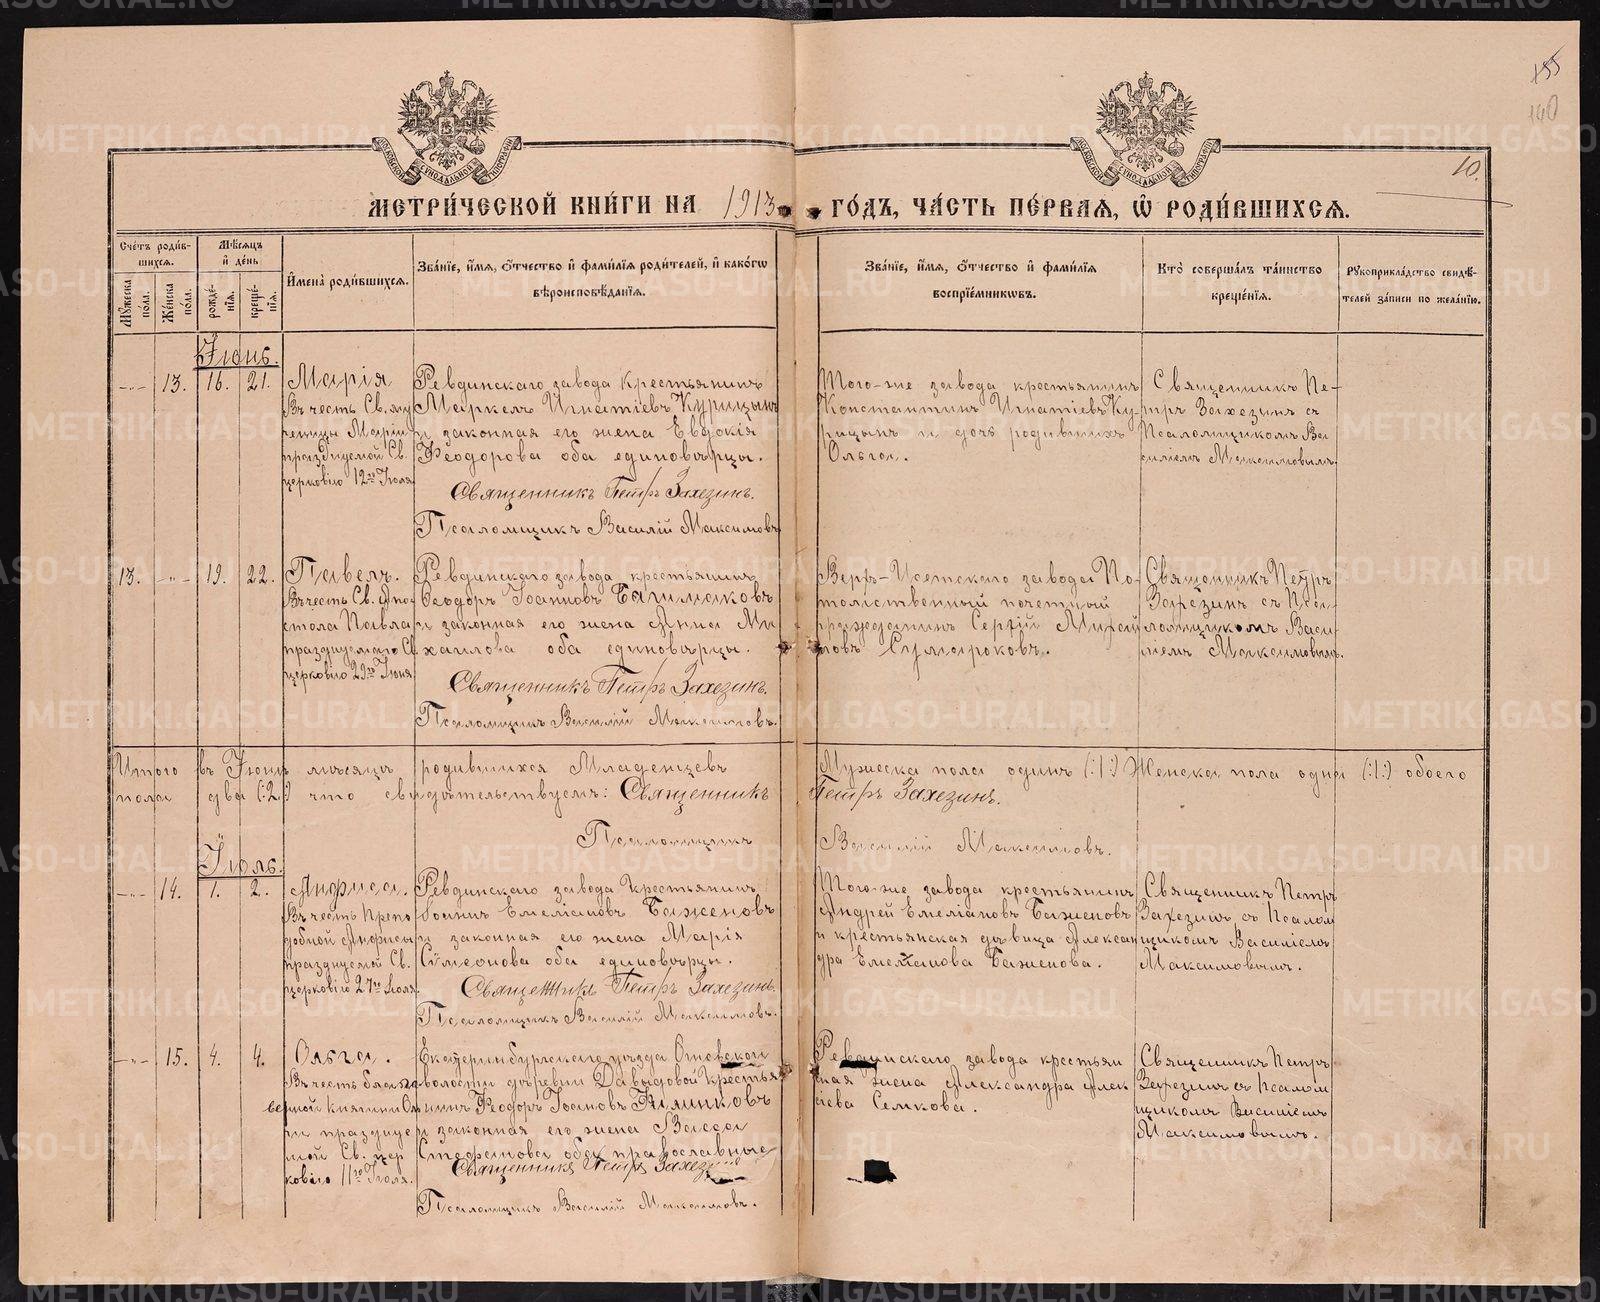 155
140
10.
МОСКОВСКОЙ СѴНОДАЛЬНОЙ ТИПОГРАФІИ
МОСКОВСКОЙ СѴНОДАЛЬНОЙ ТИПОГРАФІИ
МЕТРИ́ЧЕСКОЙ КНИ́ГИ НА 1913 ГО́ДЪ, ЧА́СТЬ ПЕ́РВАѦ, Ѡ҆ РОДИ́ВШИХСѦ.
Сче́тъ роди́в-
шихсѧ.
Мѣ́сѧцъ
и҆ де́нь
Мꙋ́жеска по́ла.
Же́нска по́ла.
рожде́-
нїѧ.
креще́-
нїѧ.
И҆мена̀ роди́вшихсѧ.
Зва́нїе, и҆́мѧ, ѻ҆́тчество и҆ фами́лїѧ роди́телей, и҆ како́гѡ
вѣроисповѣ́данїѧ.
Зва́нїе, и҆́мѧ, ѻ҆́тчество и҆ фами́лїѧ
воспрїе́мникѡвъ.
Кто̀ соверша́лъ та́инство
креще́нїѧ.
Рꙋкоприкла́дство свидѣ́-
телей за́писи по жела́нїю.
Іюнь.
-„- 13. 16. 21.
Марія
Въ честь Св. му
ченицы Маріи
празднуемой Св.
церковію 12го Іюля
Ревдинскаго завода крестьянинъ
Маркелъ Игнатіевъ Курицынъ
и законная его жена Евдокія
Феодорова оба единовѣрцы.
Священникъ Петръ Захезинъ.
Псаломщикъ Василій Максимовъ
Того-же завода крестьянинъ
Константинъ Игнатіевъ Ку-
рицынъ и дочь родившихъ
Ольга.
Священникъ Пе-
тръ Захезинъ съ
Псаломщикомъ Ва
силіемъ Максимовымъ.
13. -„- 19. 22.
Павелъ.
Въ честь Св. Апо-
стола Павла
празднуемаго Св.
церковію 29го Іюня
Ревдинскаго завода крестьянинъ
Феодоръ Іоанновъ Башмаковъ
и законная его жена Анна Ми
хаилова оба единовѣрцы.
Священникъ Петръ Захезинъ.
Псаломщикъ Василій Максимовъ.
Верхъ-Исетскаго завода По-
томственный почетный
гражданинъ Сергій
Сумароковъ.
Священникъ Петръ
Захезинъ съ Псал
ломщикомъ Васи
ліемъ Максимовымъ.
Итого въ Іюнѣ мѣсяцѣ родившихся Младенцевъ Мужеска пола одинъ (:1:) Женска пола одна (:1:) обоего
пола два (:2:) что свидѣтельствуемъ: Священникъ Петръ Захезинъ.
Псаломщикъ Василій Максимовъ.
Іюль.
-„- 14. 1. 2.
Анфиса.
Въ честь Препо
добной Анфисы
празднуемой Св.
церковію 27го Іюля.
Ревдинскаго завода крестьянинъ
Іоаннъ Емеліановъ Баженовъ
и законная его жена Марія
Сѵмеонова оба единовѣрцы.
Священникъ Петръ Захезинъ.
Псаломщикъ Василій Максимовъ.
Того-же завода крестьянинъ
Андрей Емеліановъ Баженовъ
и крестьянская дѣвица Алексан
дра Емеліанова Баженова.
Священникъ Петръ
Захезинъ съ Псалом
щикомъ Василіемъ
Максимовымъ.
-„- 15. 4. 4.
Ольга.
Въ честь благо
верной Княгини Ол
ги праздпуе
мой Св. цер
ковію 11го Іюля.
Екатеринбургскаго уѣзда
волости деревни Давыдовой крестья
нинъ Феодоръ Іоанновъ
и законная его жена Васса
Стефанова оба православные
Священникъ Петръ Захезинъ
Псаломщикъ Василій Максимовъ.
Ревдинскаго завода крестьян
ская жена Александра Алек
сіева Семкова.
Священникъ Петръ
Захезинъ съ Псалом
щикомъ Василіемъ
Максимовымъ.
METRIKI.GASO-URAL.RU